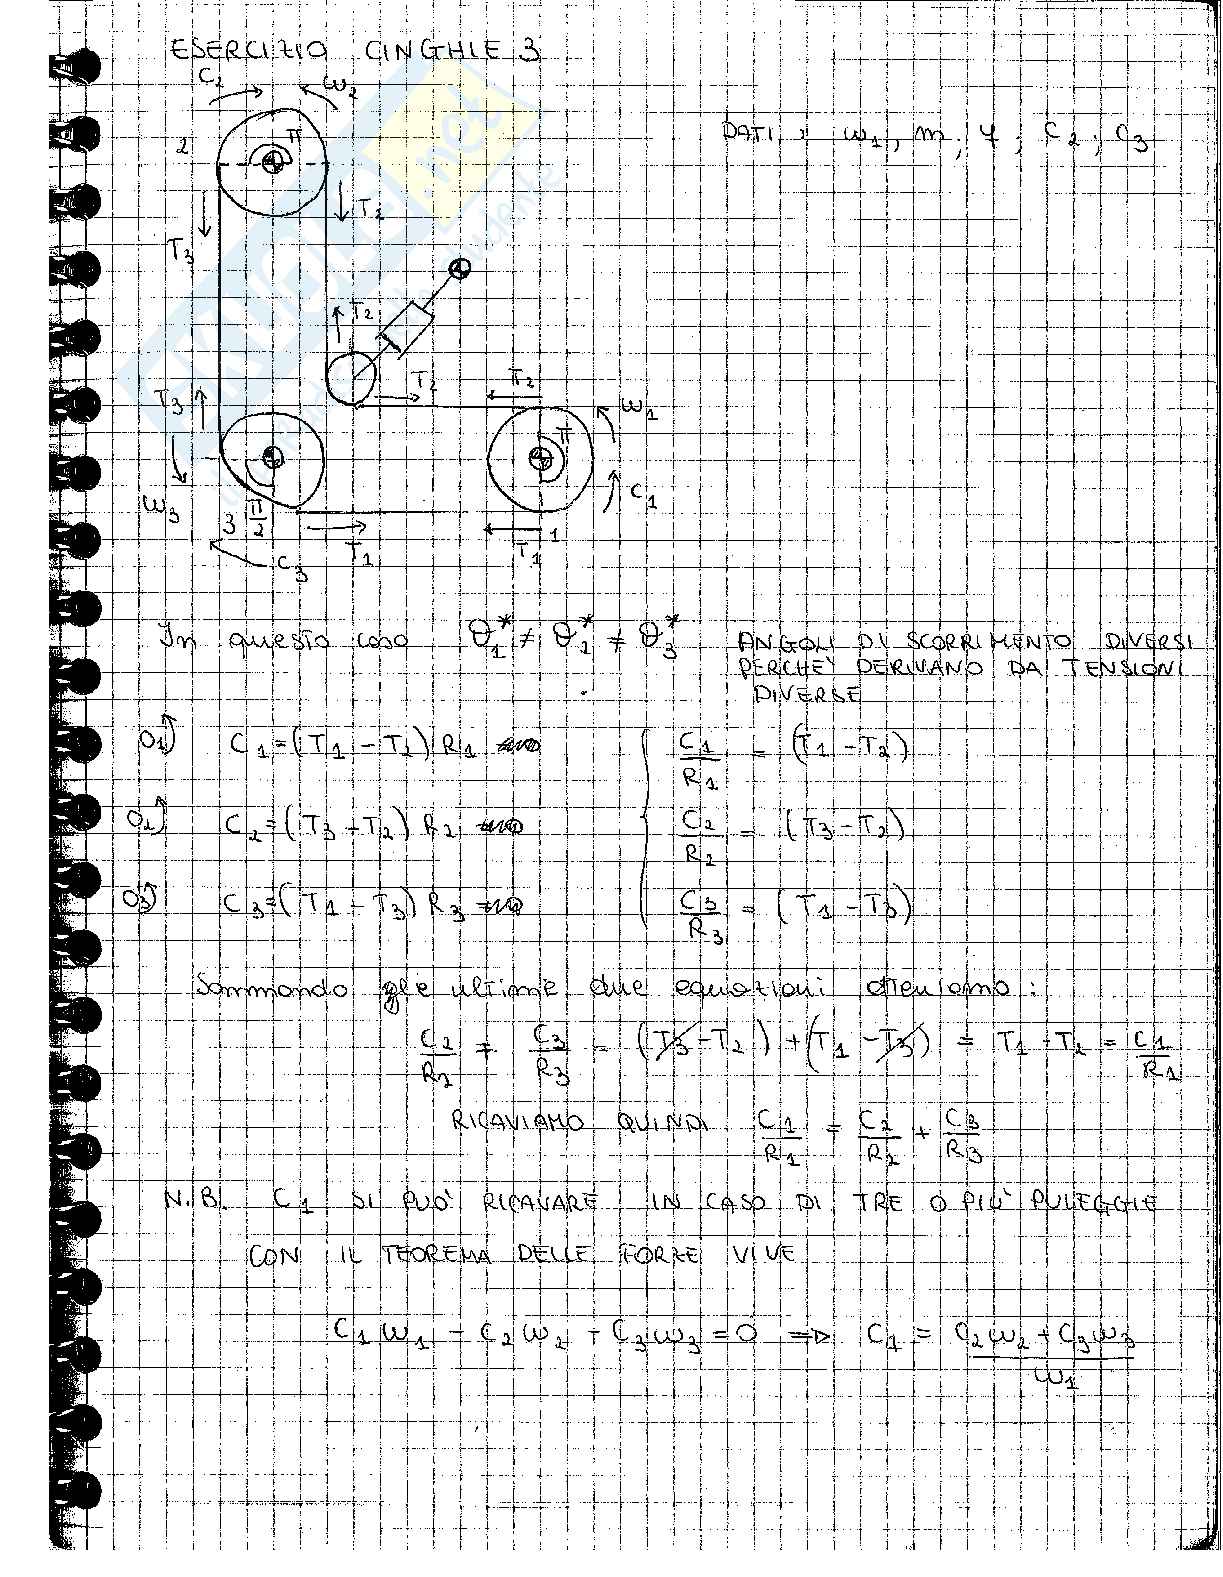 ESERCIZIO CINGHIE 3
C2 ω2
DATI: ω1, m, 4, C2, C3
2 π
T3 T2
T2
T3 T2 T2 ω1
π
ω3 C1
3 π/2 T1 T1 1
C3
In questo caso θ1* ≠ θ2* ≠ θ3* ANGOLI DI SCORRIMENTO DIVERSI
PERCHÈ DERIVANO DA TENSIONI
DIVERSE
O1) C1=(T1-T2) R1 C1/R1 = (T1-T2)
O2) C2=(T3+T2) R2 C2/R2 = (T3-T2)
O3) C3=(T1-T3) R3 C3/R3 = (T1-T3)
Sommando gle ultime due equazioni otteniamo:
C2/R2 + C3/R3 = (T3-T2)+(T1-T3) = T1-T2 = C1/R1
RICAVIAMO QUINDI C1/R1 = C2/R2 + C3/R3
N.B. C1 SI PUÒ RICAVARE IN CASO DI TRE O PIÙ PULEGGIE
CON IL TEOREMA DELLE FORZE VIVE
C1ω1 - C2ω2 - C3ω3 = 0 ⇒ C1 = (C2ω2 + C3ω3)/ω1